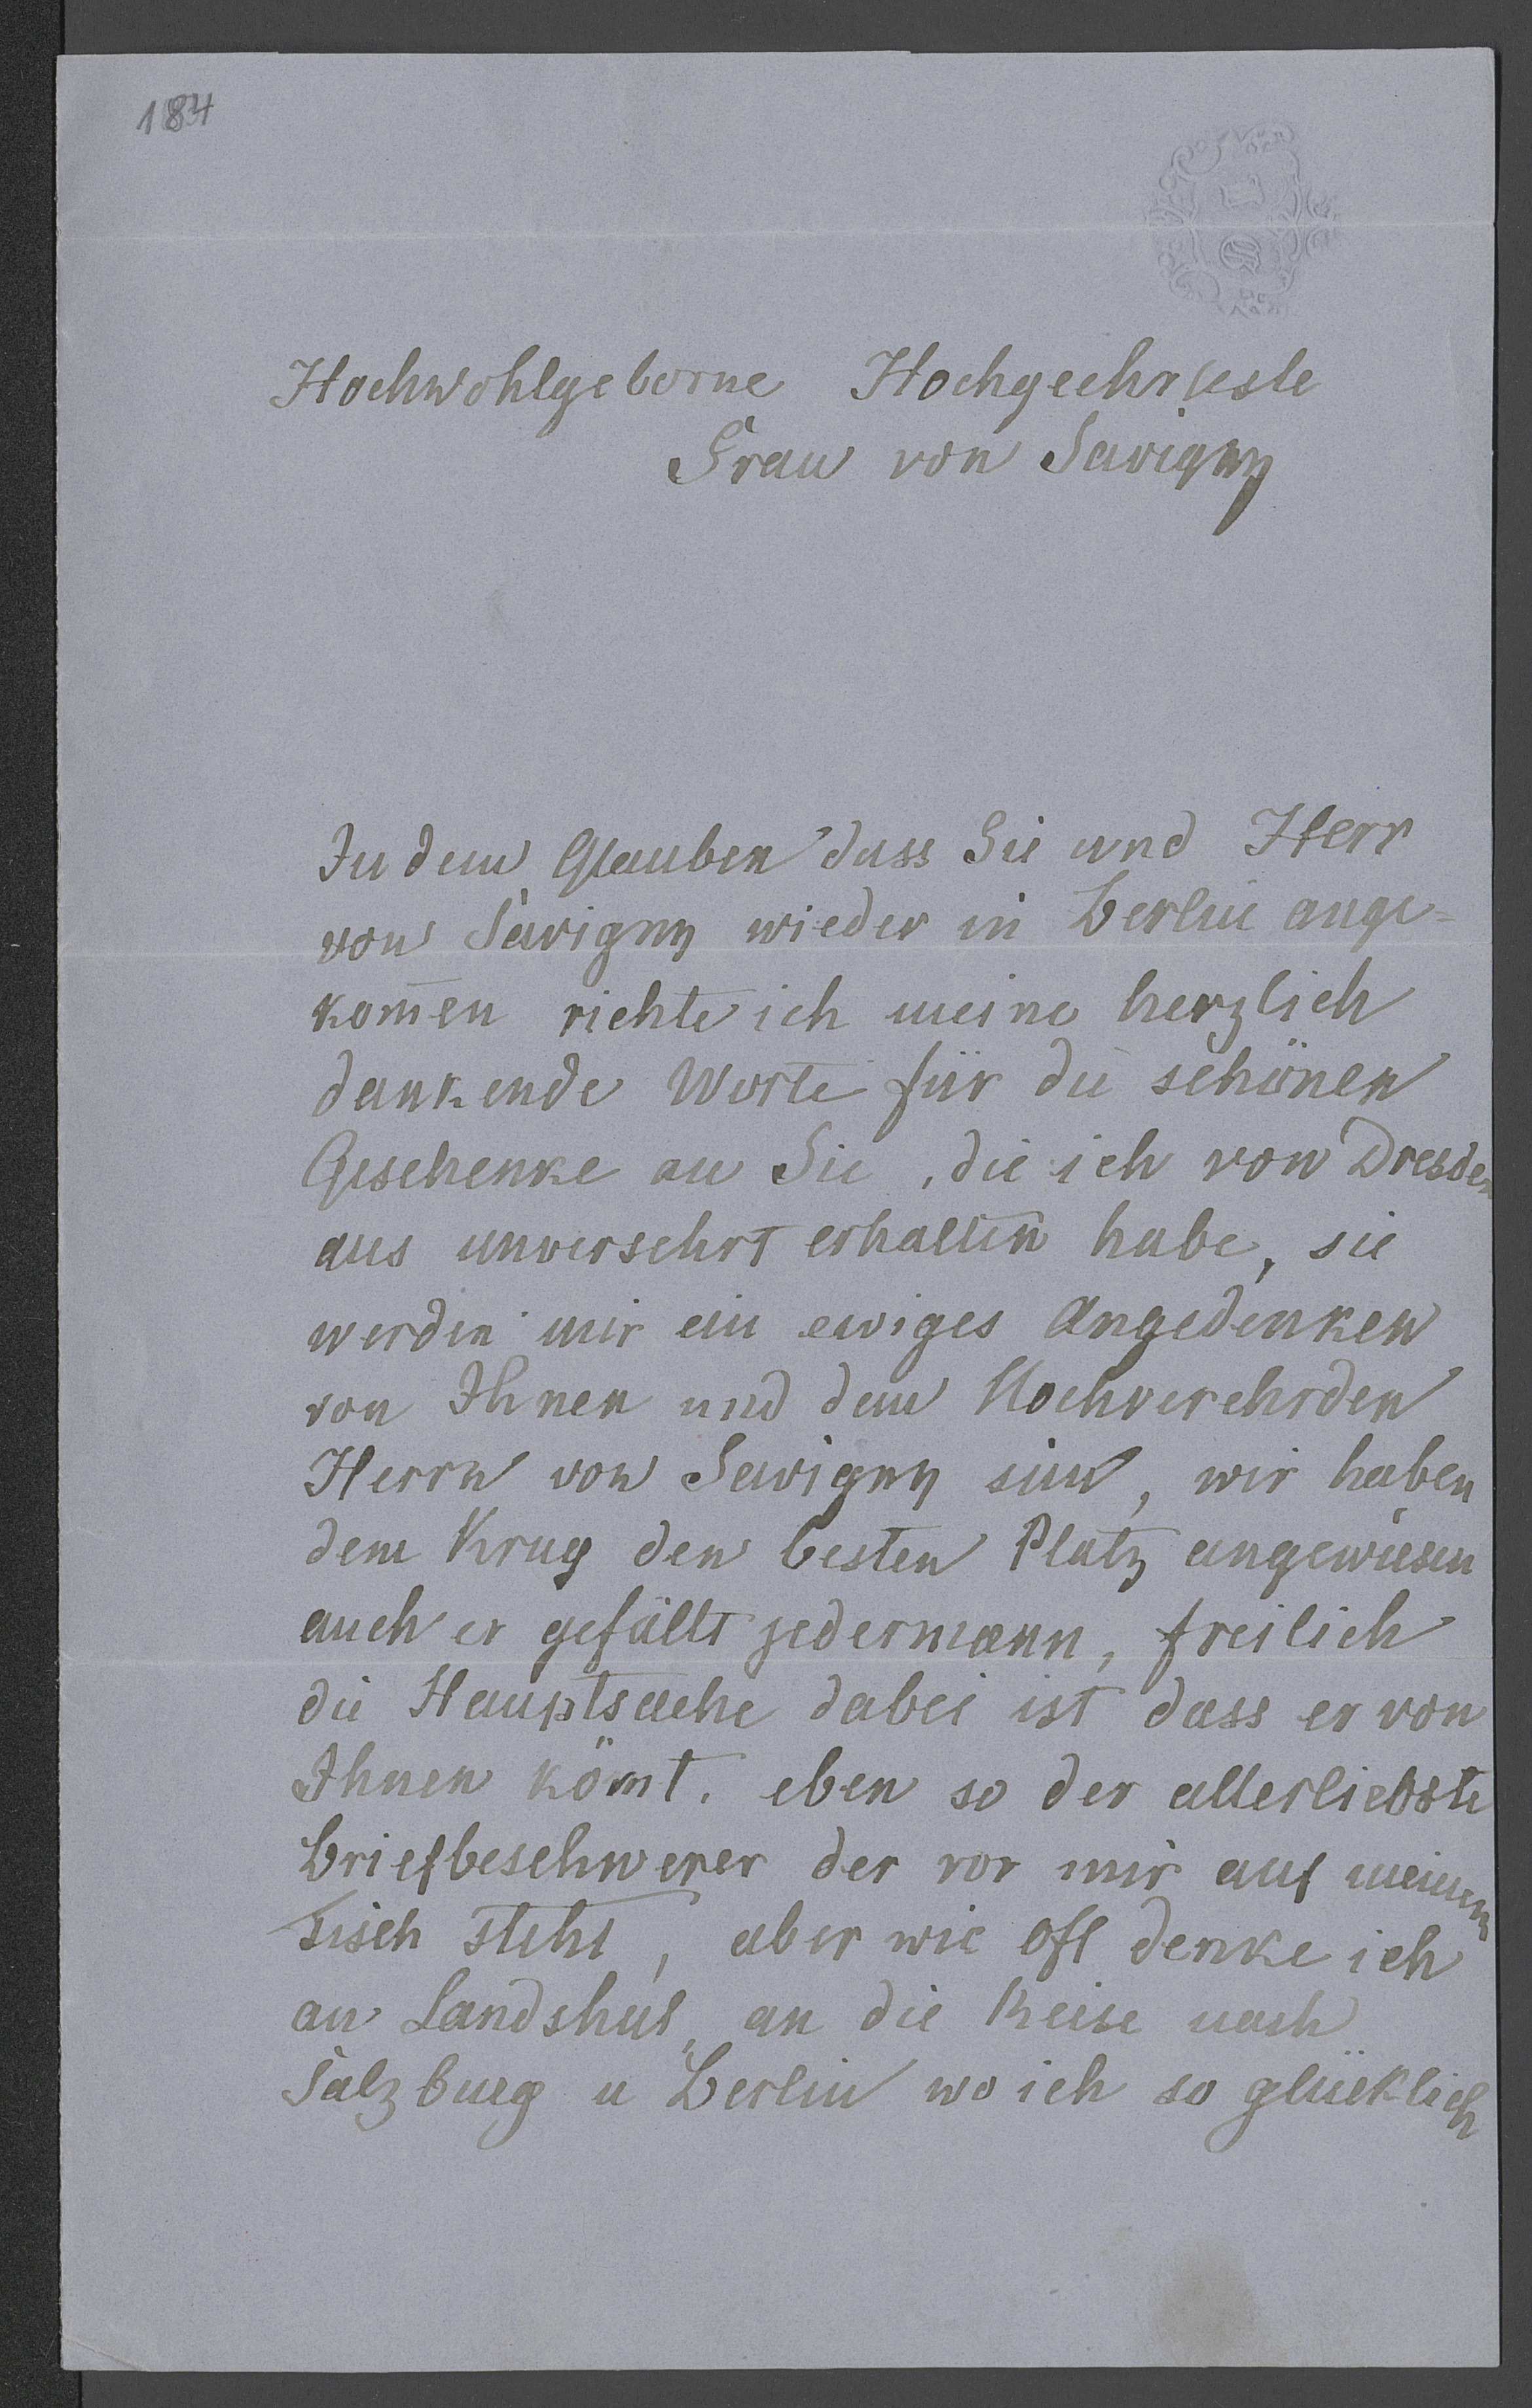 184
Hochwohlgeborne Hochgeehrteste
Frau von Savigny
In dem Glauben dass Sie und Herr
von Savigny wieder in Berlin ange=
kom̄en richte ich meine herzlich
dankende Worte für die schönen
Geschenke an Sie, die ich von Dresden
aus unversehrt erhalten habe, sie
werden mir ein ewiges Angedenken
von Ihnen und dem Hochverehrden
Herrn von Savigny sein, wir haben
dem Krug den besten Platz angewiesen
auch er gefällt jedermann, freilich
die Hauptsache dabei ist dass er von
Ihnen köm̄t. eben so der allerliebste
Briefbeschwerer der vor mir auf meinem
Tisch steht, aber wie oft denke ich
an Landshut, an die Reise nach
Salzburg u Berlin wo ich so glücklich